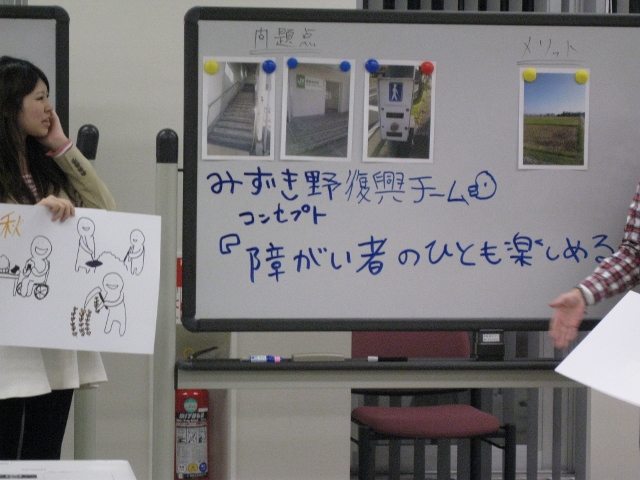 問題点
メリット
みずき野復興チーム
コンセプト
『障がい者のひとも楽しめる
秋